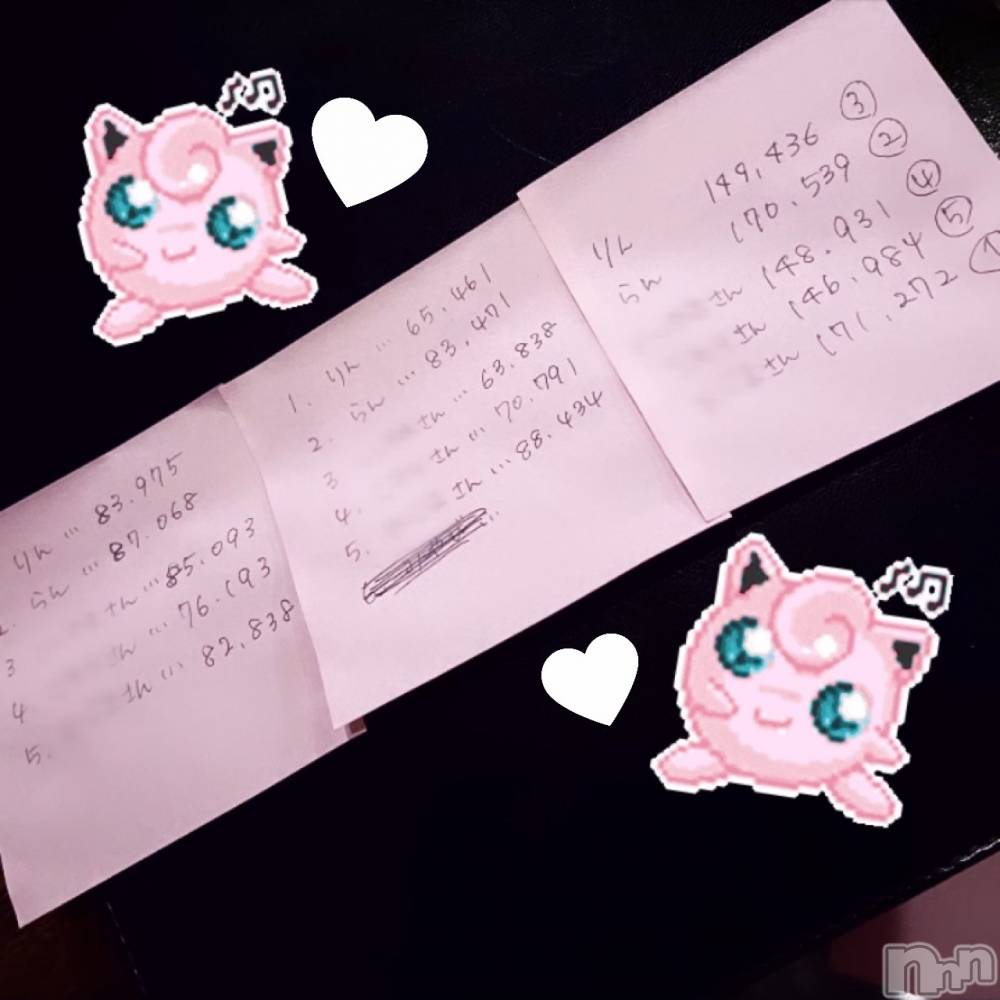 りん … 83.975
2. らん … 87.068
3 さん … 85.093
4 さん … 76.193
5. さん … 82,838
1. りん … 65.461
2. らん … 83.471
3 さん … 63.838
4. さん … 70.791
5. さん … 88.434
りん 149,436 ③
らん 170.539 ②
さん 148.931 ④
さん 146,984 ⑤
さん 171,272 ①
nnn